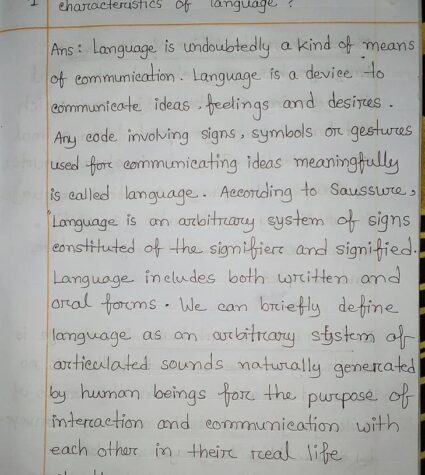 characteristics of language ?
Ans : Language is undoubtedly a kind of means
of communication. Language is a device to
communicate ideas, feelings and desires.
Any code involving signs, symbols or gestures
used for communicating ideas meaningfully
is called language. According to Saussure,
"Language is an arbitrary system of signs
constituted of the signifier and signified.
Language includes both written and
oral forms. We can briefly define
language as an arbitrary system of
articulated sounds naturally generated
by human beings for the purpose of
interaction and communication with
each other in their real life